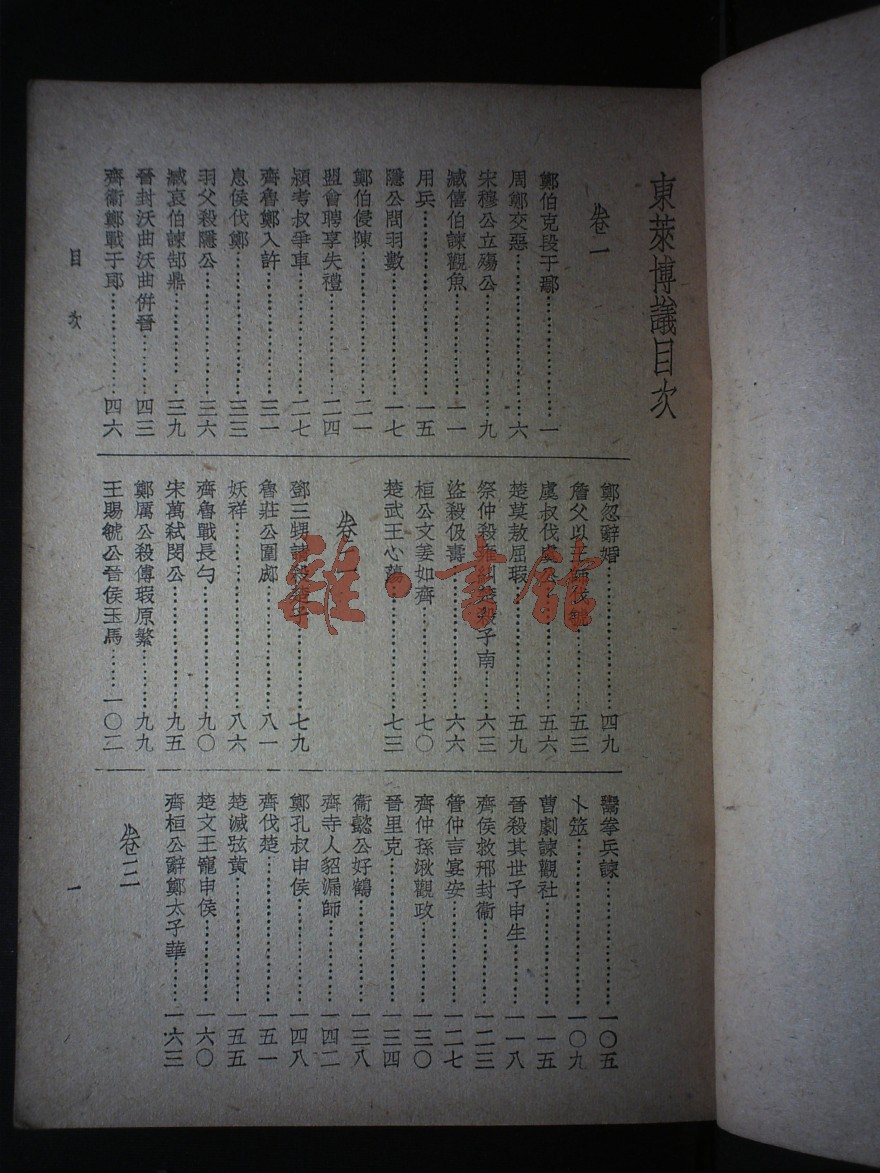 東萊博議目次
卷一
鄭伯克段于鄢……一
周鄭交惡……六
宋穆公立殤公……九
臧僖伯諫觀魚……一一
用兵……一五
隱公問羽數……一七
鄭伯侵陳……二一
盟會聘享失禮……二四
潁考叔爭車……二七
齊魯鄭入許……三一
息侯伐鄭……三三
羽父殺隱公……三六
臧哀伯諫郜鼎……三九
晉封沃曲沃曲併晉……四三
齊衞鄭戰于郎……四六
鄭忽辭婚……四九
詹父以王師伐虢……五三
虞叔伐虞公……五六
楚莫敖屈瑕……五九
祭仲殺雍糾楚殺子南……六三
盜殺伋壽……六六
桓公文姜如齊……七〇
楚武王心蕩……七三
卷二
鄧三甥請殺楚子……七九
魯莊公圍郕……八一
妖祥……八六
齊魯戰長勺……九〇
宋萬弒閔公……九五
鄭厲公殺傅瑕原繁……九九
王賜虢公晉侯玉馬……一〇二
鬻拳兵諫……一〇五
卜筮……一〇九
曹劇諫觀社……一一五
晉殺其世子申生……一一八
齊侯救邢封衞……一二三
管仲言宴安……一二七
齊仲孫湫觀政……一三〇
晉里克……一三四
衞懿公好鶴……一三八
齊寺人貂漏師……一四二
鄭孔叔申侯……一四八
齊伐楚……一五一
楚滅弦黄……一五五
楚文王寵申侯……一六〇
齊桓公辭鄭太子華……一六三
卷三
目次
一
雜·書館